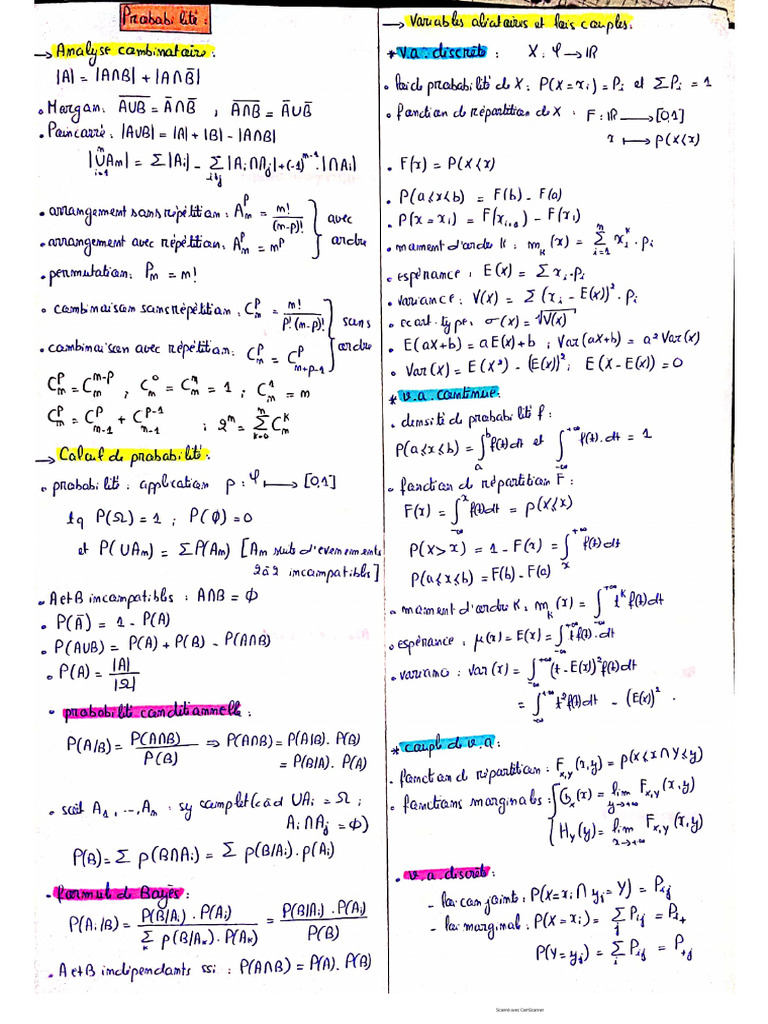 Probabilité :
→ Analyse combinatoire :
|A| = |A∩B| + |A∩B̄|
• Morgan: \overline{A∪B} = Ā∩B̄ , \overline{A∩B} = Ā∪B̄
• Poincarré: |A∪B| = |A| + |B| - |A∩B|
|⋃_{i=1}^{n} Am| = Σ|Ai| - Σ_{i≠j} |Ai∩Aj| + (-1)^{n-1}.|∩Ai|
• arrangement sans répétition: A_n^p = n!/(n-p)!
• arrangement avec répétition: A_n^p = n^p } avec ordre
• permutation: P_n = n!
• combinaison sans répétition: C_n^p = n!/(p!.(n-p)!)
• combinaison avec répétition: C_n^p = C_{n+p-1}^p } sans ordre
C_n^p = C_n^{n-p} ; C_n^0 = C_n^n = 1 ; C_n^1 = n
C_n^p = C_{n-1}^p + C_{n-1}^{p-1} ; 2^n = Σ_{k=0}^{n} C_n^k
→ Calcul de probabilité :
• probabilité : application p : φ ⟼ [0,1]
tq P(Ω) = 1 ; P(∅) = 0
et P(∪An) = ΣP(An) [An suite d'evenements
2 à 2 incompatibles]
• A et B incompatibles : A∩B = ∅
• P(Ā) = 1 - P(A)
• P(A∪B) = P(A) + P(B) - P(A∩B)
• P(A) = |A|/|Ω|
• probabilité conditionnelle :
P(A/B) = P(A∩B)/P(B) ⇒ P(A∩B) = P(A/B). P(B)
= P(B/A). P(A)
• soit A1, ..., An : sy complet (càd ∪Ai = Ω ;
Ai∩Aj = ∅)
P(B) = Σ p(B∩Ai) = Σ p(B/Ai). p(Ai)
• formule de Bayès :
P(Ai/B) = P(B/Ai).P(Ai) / Σ_k p(B/Ak).P(Ak) = P(B/Ai).P(Ai) / P(B)
• A et B indépendants ssi : P(A∩B) = P(A). P(B)
→ Variables aléatoires et lois couples:
* v.a. discrète : X : φ → IR
• loi de probabilité de X : P(X = xi) = Pi et ΣPi = 1
• fonction de répartition de X : F : IR ⟶ [0,1]
x ⟼ p(X<x)
• F(x) = P(X<x)
• P(a<x<b) = F(b) - F(a)
• P(x = xi) = F(x_{i+1}) - F(xi)
• moment d'ordre K : m_k(x) = Σ_{i=1}^{n} xi^k . pi
• espérance : E(x) = Σ xi.pi
• variance : V(x) = Σ (xi - E(x))². pi
• ecart. type : σ(x) = √V(x)
• E(ax+b) = aE(x)+b ; Var(ax+b) = a² Var(x)
• Var(x) = E(X²) - (E(x))² ; E(X - E(x)) = 0
* v.a. continue :
• densité de probabilité f :
P(a<x<b) = ∫_a^b f(t)dt et ∫_{-∞}^{+∞} f(t).dt = 1
• fonction de répartition F :
F(x) = ∫_{-∞}^{x} f(t)dt = p(X<x)
P(X>x) = 1 - F(x) = ∫_x^{+∞} f(t)dt
P(a<x<b) = F(b) - F(a)
• moment d'ordre K : m_k(x) = ∫_{-∞}^{+∞} t^k f(t)dt
• espérance : μ(x) = E(x) = ∫_{-∞}^{+∞} t f(t).dt
• variance : Var(x) = ∫_{-∞}^{+∞} (t - E(x))² f(t)dt
= ∫_{-∞}^{+∞} t² f(t)dt - (E(x))².
* couple de v.a :
• fonction de répartition : F_{x,y}(x,y) = p(X<x ∩ Y<y)
• fonctions marginales : { G_x(x) = lim_{y→+∞} F_{x,y}(x,y)
H_y(y) = lim_{x→+∞} F_{x,y}(x,y)
• v.a. discrète :
- loi conjointe : P(X = xi ∩ yj = Y) = P_ij
- loi marginale : P(X = xi) = Σ_j P_ij = P_i+
P(Y = yj) = Σ_i P_ij = P_+j
Scanné avec CamScanner